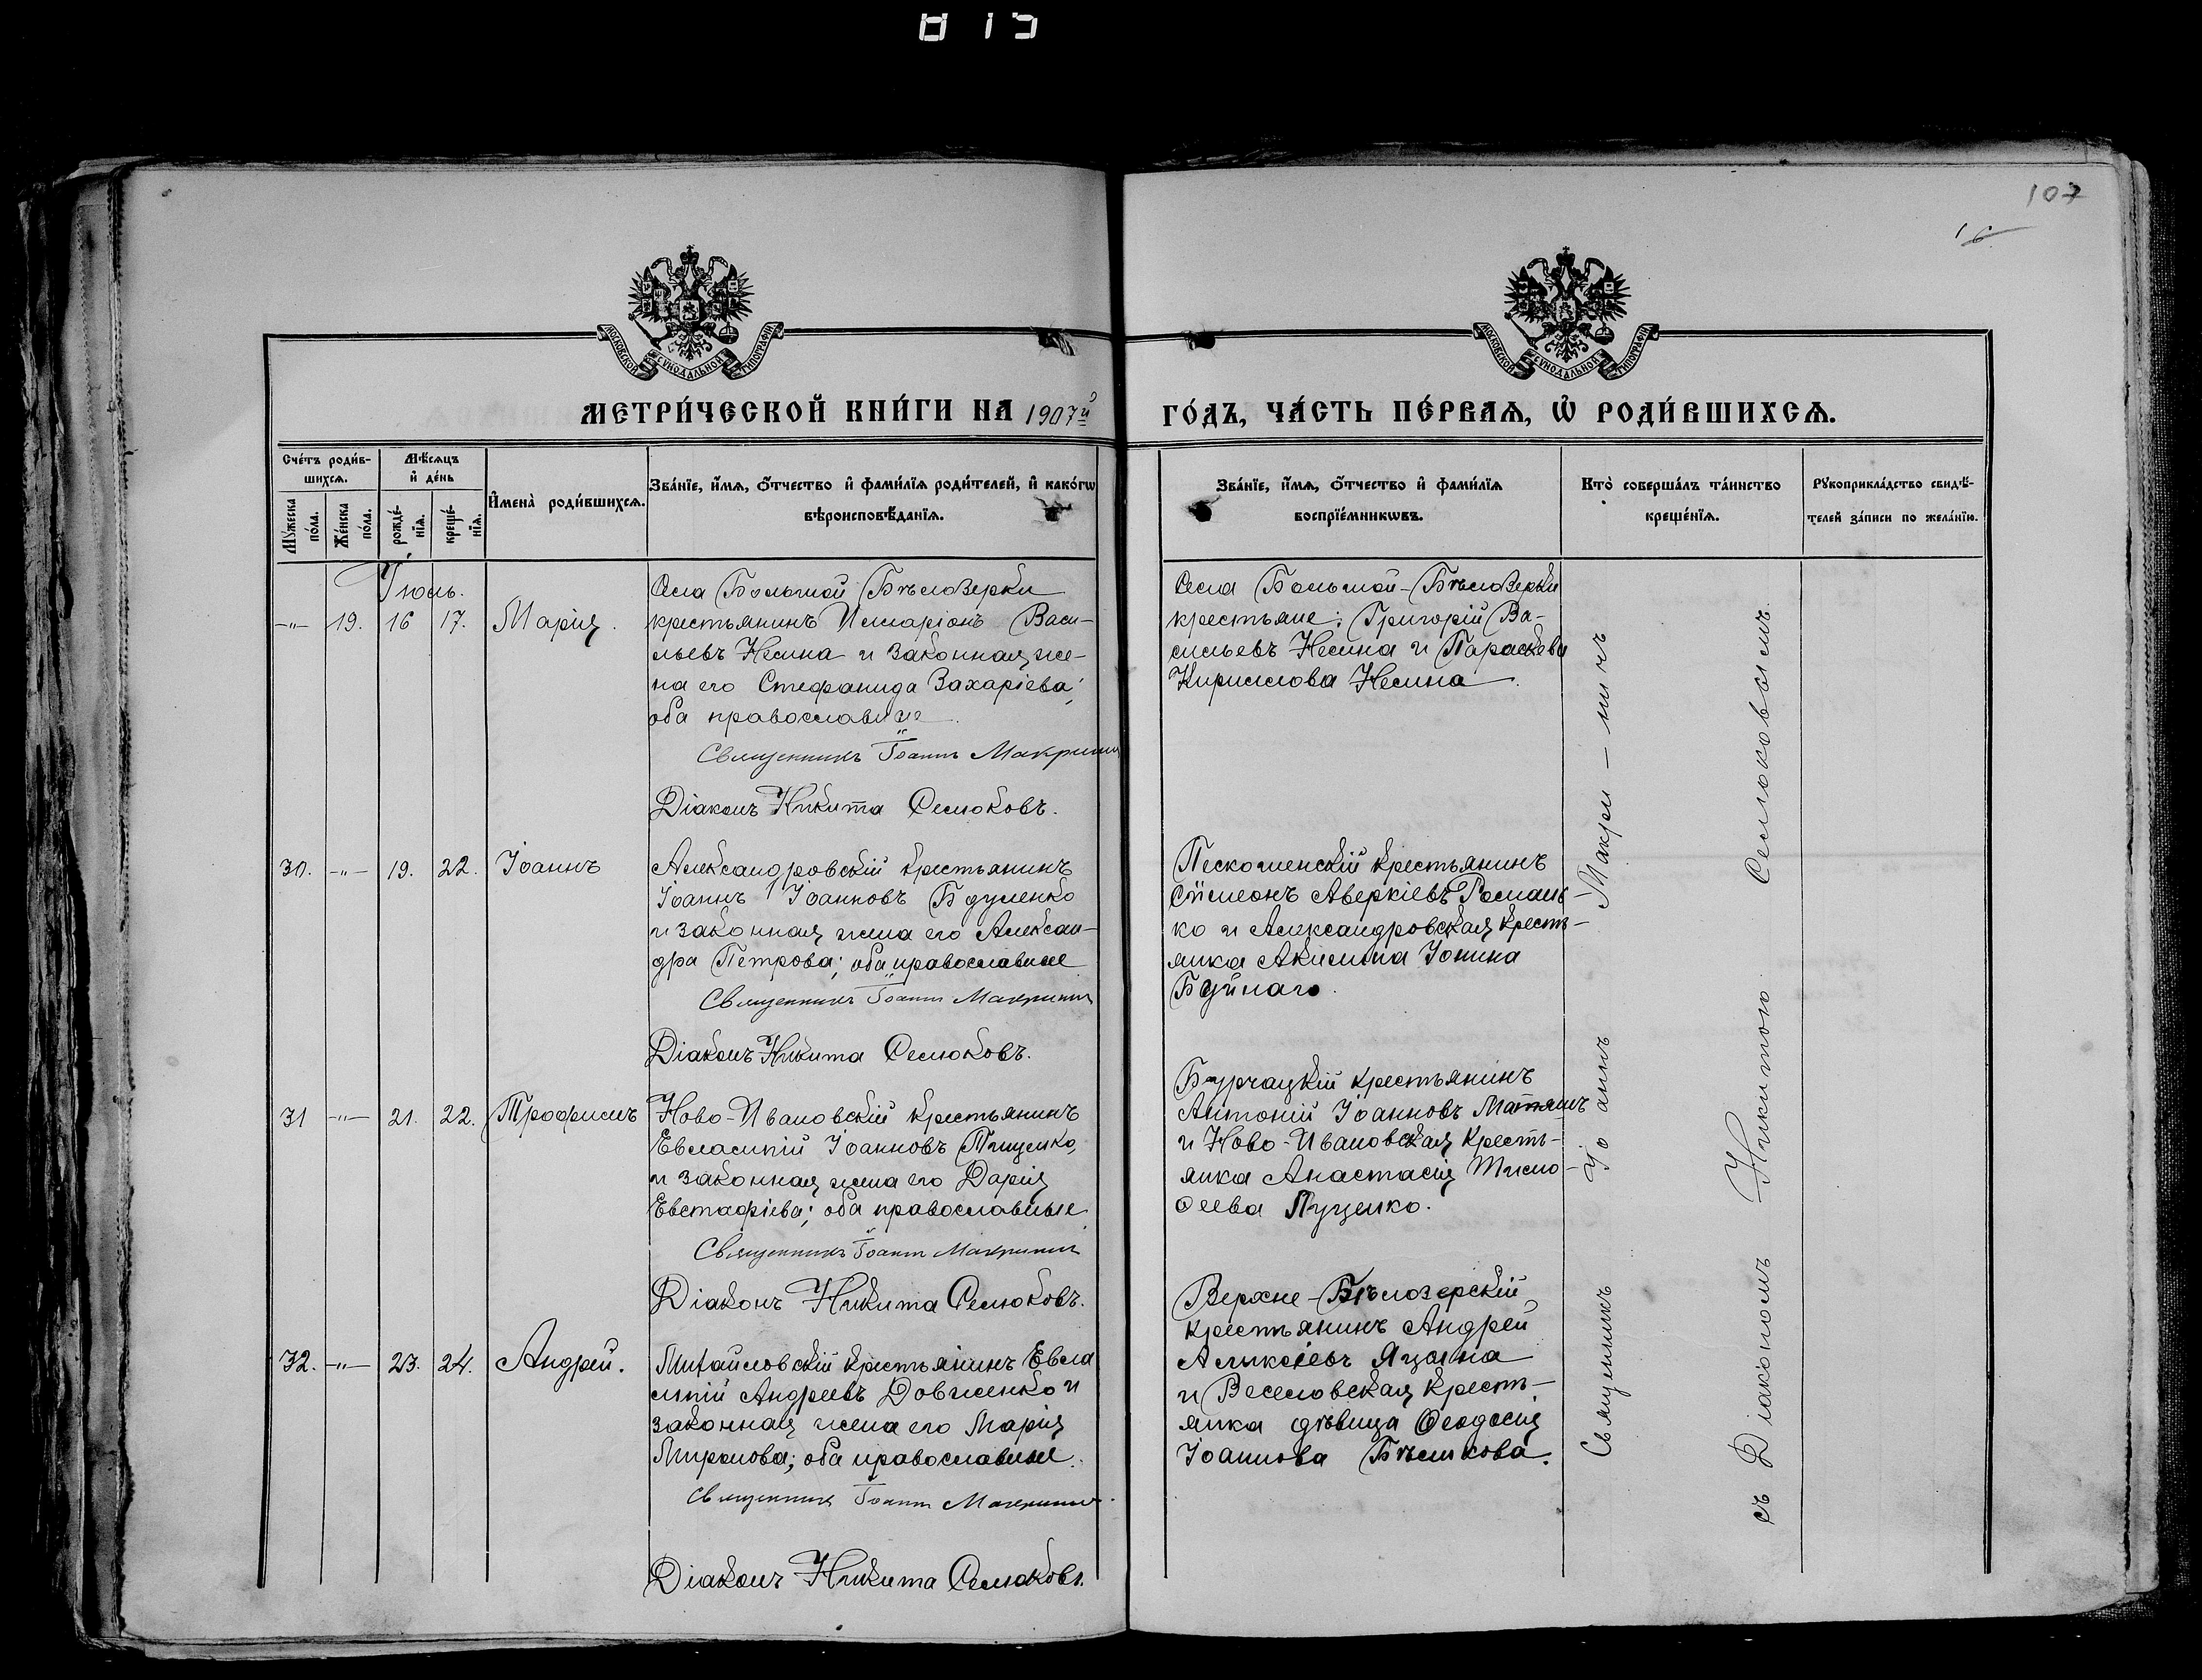 815
107
16
МОСКОВСКОЙ СУНОДАЛЬНОЙ ТИПОГРАФІИ
МОСКОВСКОЙ СУНОДАЛЬНОЙ ТИПОГРАФІИ
МЕТРИ́ЧЕСКОЙ КНИ́ГИ НА 1907й ГО́ДЪ, ЧА́СТЬ ПЕ́РВАѦ, Ѡ҆ РОДИ́ВШИХСѦ.
Сче́тъ роди́в-
шихсѧ.
Мѣ́сѧцъ
и҆ де́нь
Мꙋ́жеска
по́ла.
Же́нска
по́ла.
рожде́-
нїѧ.
креще́-
нїѧ.
И҆мена̀ роди́вшихсѧ.
Зва́нїе, и҆́мѧ, ѻ҆́тчество и҆ фами́лїѧ роди́телей, и҆ како́гѡ
вѣроисповѣ́данїѧ.
Зва́нїе, и҆́мѧ, ѻ҆́тчество и҆ фами́лїѧ
воспрїе́мникѡвъ.
Кто̀ соверша́лъ та́инство
креще́нїѧ.
Рꙋкоприкла́дство свидѣ́-
телей за́писи по жела́нїю.
Іюль.
-"- 19. 16 17. Марія.
Села Большой Бѣлозерки
крестьянинъ Илларіонъ Васи-
льевъ Несина и законная же-
на его Стефанида Захаріева;
оба православные.
Священникъ Іоаннъ Макри
Діаконъ Никита Семоковъ.
Села Большой-Бѣлозерки
крестьяне: Григорій Ва-
сильевъ Несина и Параскева
Кириллова Несина.
30. -"- 19. 22. Іоаннъ
Александровскій крестьянинъ
Іоаннъ Іоанновъ Бдуленко
и законная жена его Алексан-
дра Петрова; оба православные
Священникъ Іоаннъ
Діаконъ Никита Семоковъ.
крестьянинъ
Сѷмеонъ Аверкіевъ Романь-
ко и Александровская кресть-
янка Акилина Іонина
Буйнаго.
31 -"- 21. 22. Трофимъ
Ново-Ивановскій крестьянинъ
Евлампій Іоанновъ Тищенко,
и законная жена его Дарія
Евстафіева; оба православные
Священникъ Іоаннъ
Діаконъ Никита Семоковъ.
Бурчацкій крестьянинъ
Антоній Іоанновъ Матяшъ
и Ново-Ивановская кресть-
янка Анастасія Тимо-
ѳеева Луценко.
32. -"- 23. 24. Андрей.
Михайловскій крестьянинъ Евла
мпій Андреевъ Довженко и
законная жена его Марія
Миронова; оба православные.
Священникъ Іоаннъ
Діаконъ Никита Семоковъ.
Верхне-Бѣлозерскій
крестьянинъ Андрей
Алексіевъ Яцына
и Веселовская кресть-
янка дѣвица Ѳеодосія
Іоаннова Бѣликова.
Священникъ Іоаннъ Макри
съ Діакономъ Никитою Семоковымъ.